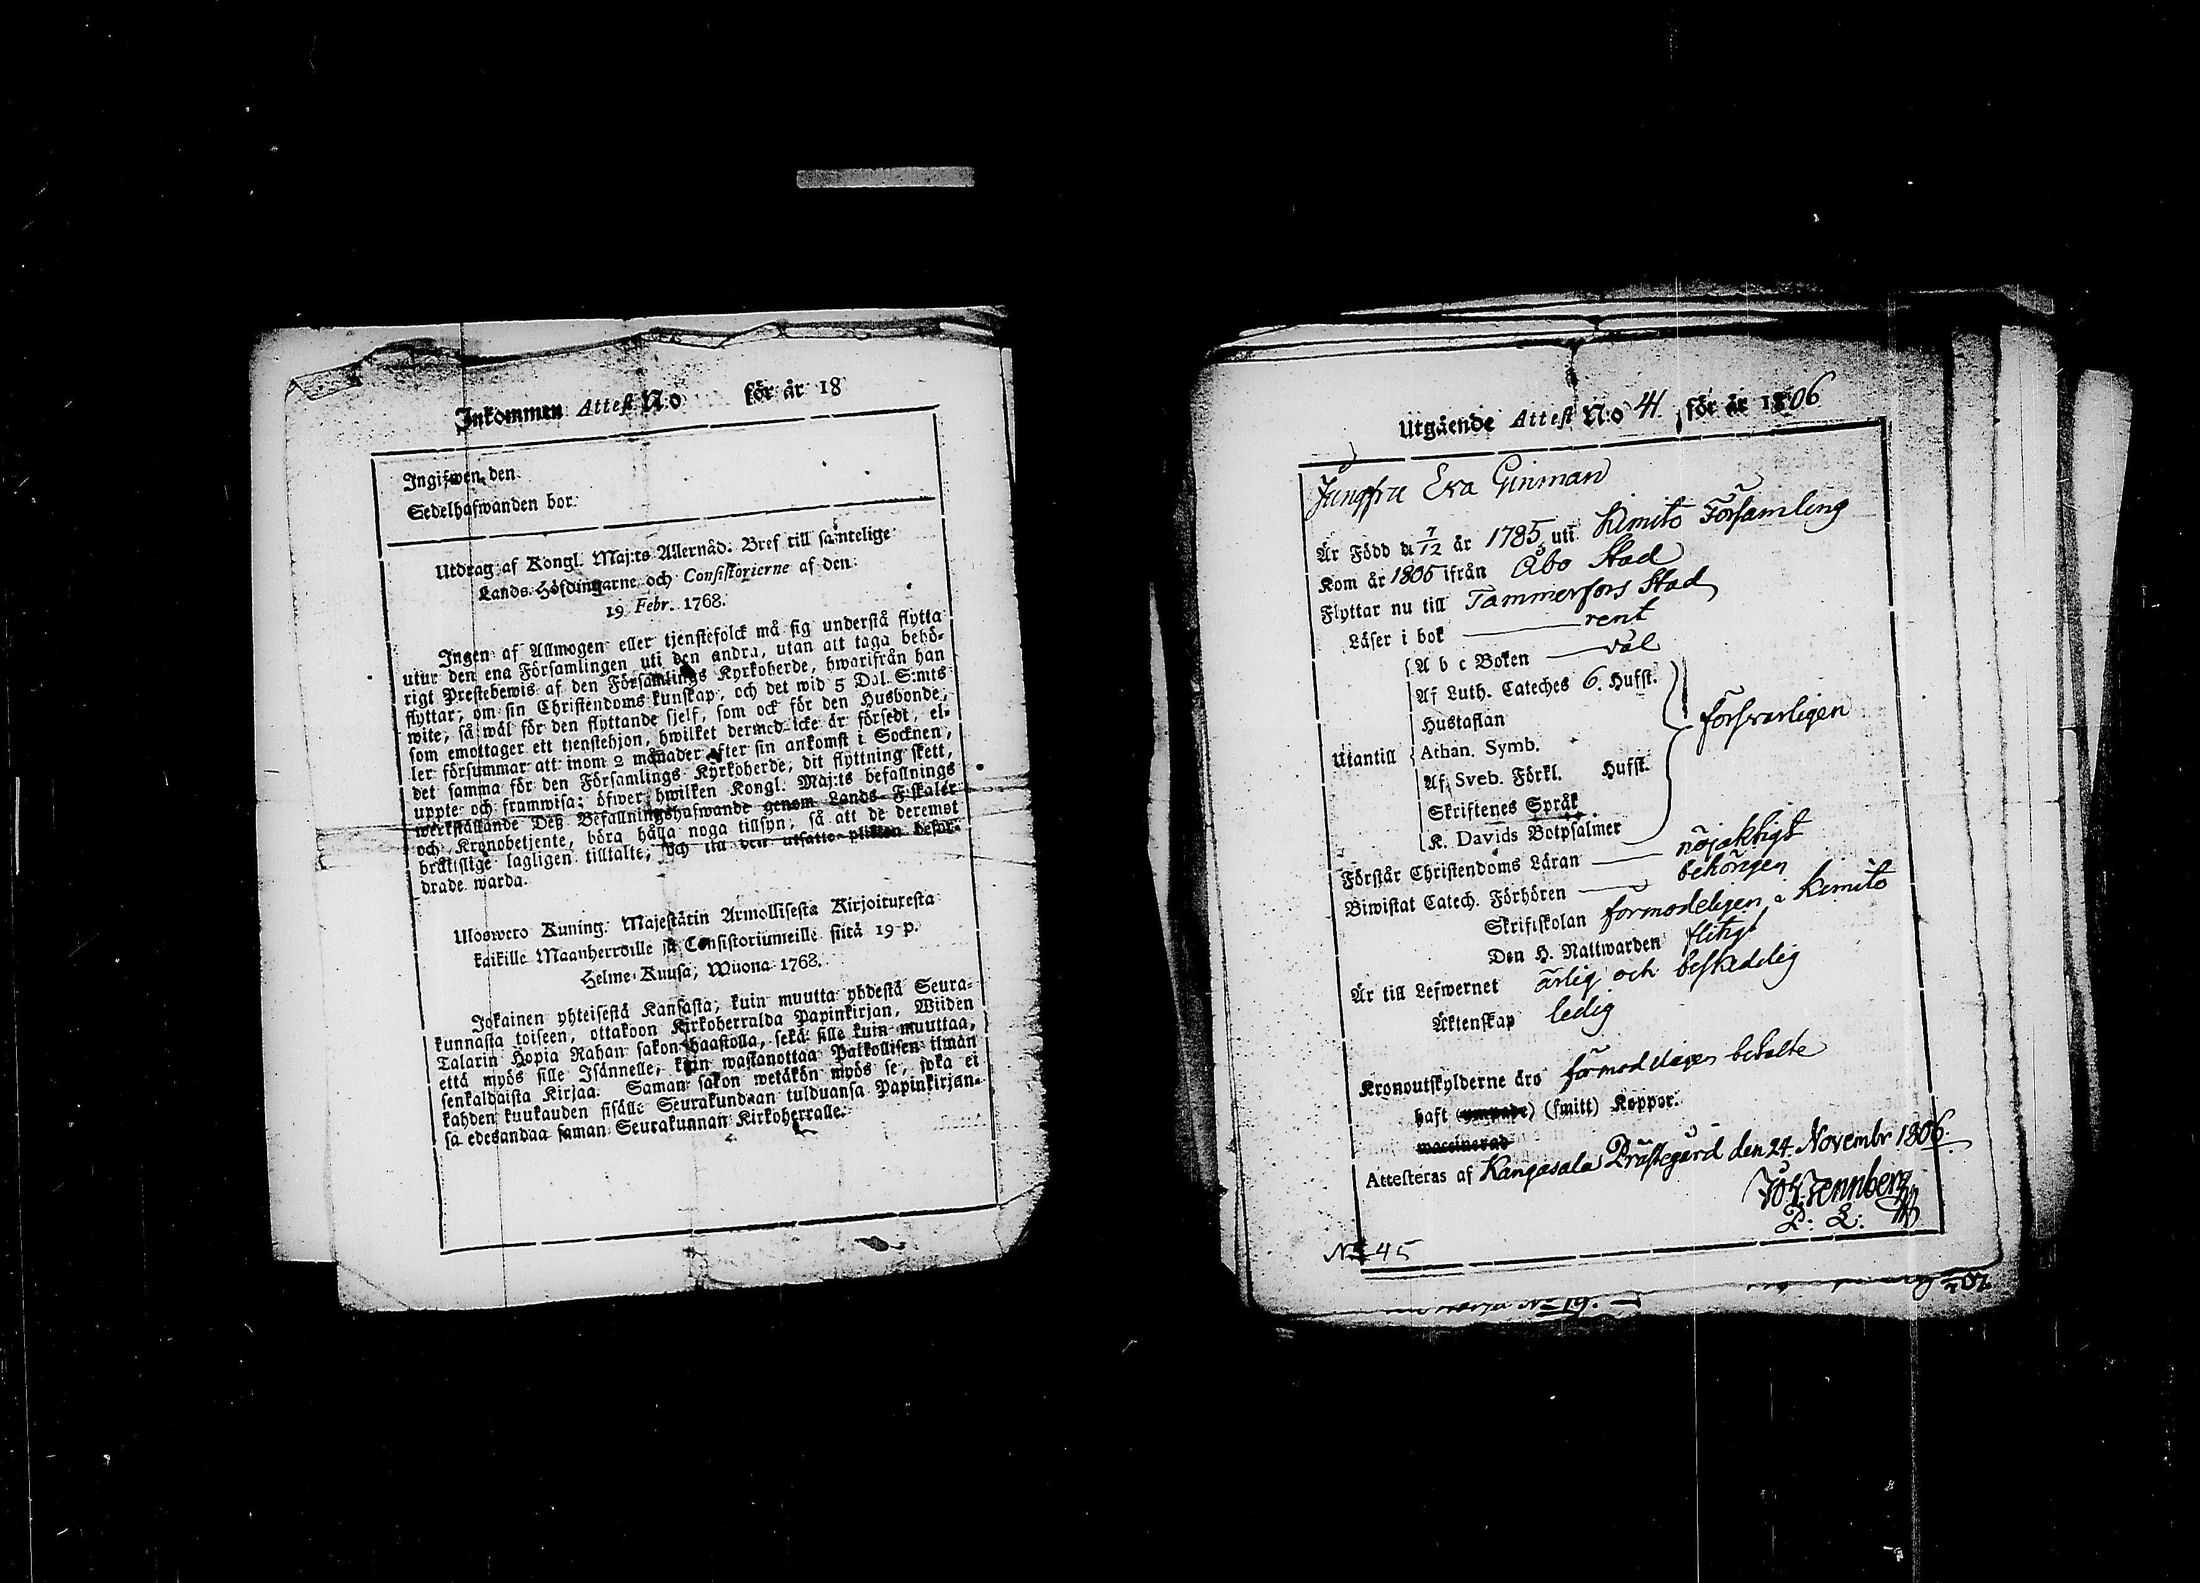 Inkommen Attest N:o för år 18
Ingifwen den
Sedelhafwanden bor
Utdrag af Kongl. Maj:ts Allernåd. Bref till samtelige
Lands-Höfdingarne och Consistorierne af den
19 Febr. 1768.
Ingen af Allmogen eller tjenstefolck må sig understå flytta
utur den ena Församlingen uti den andra, utan att taga behö-
rigt Prestebewis af den Församlings Kyrkoherde, hwarifrån han
flyttar, om sin Christendoms kunskap, och det wid 5 Dal. S:mts
wite, så wäl för den flyttande sjelf, som ock för den Husbonde,
som emottager ett tjenstehjon, hwilket dermed icke är försedt, el-
ler försummar att inom 2 månader efter sin ankomst i Socknen,
det samma för den Församlings Kyrkoherde, dit flyttning skett,
uppte och framwisa; öfwer hwilken Kongl. Maj:ts befallnings
werkställande Deß Befallningshafwande genom Lands-Fiskaler
och Kronobetjente, böra hålla noga tillsyn, så att de deremot
bråttslige lagligen tilltalte, och till den utsatte plikten befor-
drade warda.
Ulosweto Kuning. Majestätin Armollisesta Kirjoituxesta
kaikille Maanherroille ja Consistoriumeille siitä 19 p.
Helme-Kuusa, Wuona 1768.
Jokainen yhteisestä Kansasta, kuin muutta yhdestä Seura-
kunnasta toiseen, ottakoon Kirkoherralda Papinkirjan, Wiiden
Talarin Hopia Rahan sakon haastolla, sekä sille kuin muuttaa,
että myös sille Isännelle, kuin wastanottaa Palkollisen ilman
senkaldaista Kirjaa. Saman sakon wetäkön myös se, joka ei
kahden kuukauden sisälle Seurakundaan tulduansa Papinkirjan-
sa edesandaa saman Seurakunnan Kirkoherralle.
Utgående Attest N:o 41. för år 1806
Jungfru Eva Ginman
Är Född d 7/12 år 1785 uti Kimito Församling
Kom år 1805 ifrån Åbo Stad
Flyttar nu till Tammerfors Stad
Läser i bok rent
A b c Boken väl
Af Luth. Cateches 6. Hufst.
Hustaflan
försvarligen
Utantill Athan. Symb.
Af Sveb. Förkl. Hufst.
Skriftenes Språk
K. Davids Botpsalmer
Förstår Christendoms Läran nöjaktigt
Biwistat Catech. Förhören behörigen
Skriftskolan förmodeligen i Kimito
Den H. Nattwarden flitigt
Är till Lefwernet ärlig och beskedelig
Äktenskap ledig
Kronoutskylderne äro förmodeligen betalte
haft (ympade) (smitt) Koppor.
vaccinerad
Attesteras af Kangasala Prästegård den 24. Novembr 1806.
Joh. Tennberg
P: L:
No 45
No 19.